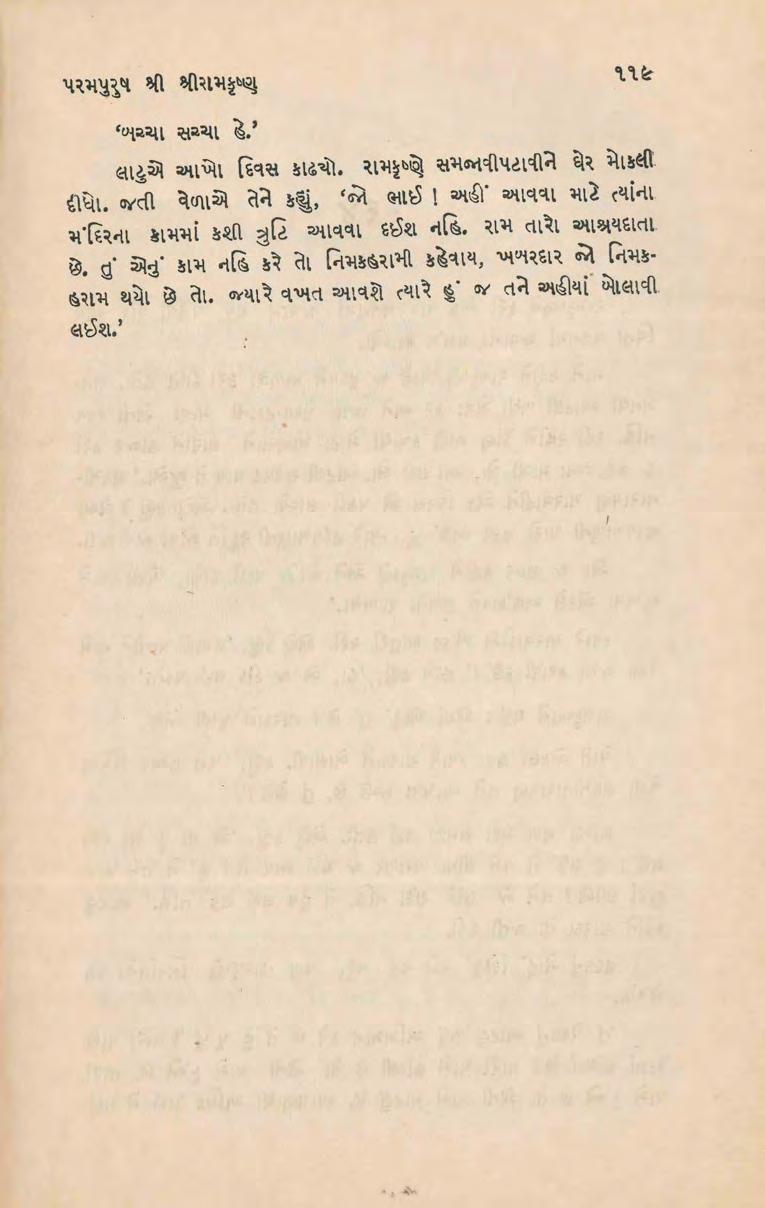 પરમપુરુષ શ્રી શ્રીરામકૃષ્ણ
૧૧૯
‘બચ્ચા સચ્ચા હે.’
લાટુએ આખો દિવસ કાઢયો. રામકૃષ્ણે સમજાવીપટાવીને ઘેર મોકલી
દીધો. જતી વેળાએ તેને કહ્યું, ‘જો ભાઈ ! અહીં આવવા માટે ત્યાંના
મંદિરના કામમાં કશી ત્રુટિ આવવા દઈશ નહિ. રામ તારો આશ્રયદાતા
છે. તું એનું કામ નહિ કરે તો નિમકહરામી કહેવાય, ખબરદાર જો નિમક-
હરામ થયો છે તો. જ્યારે વખત આવશે ત્યારે હું જ તને અહીયાં બોલાવી
લઈશ.’